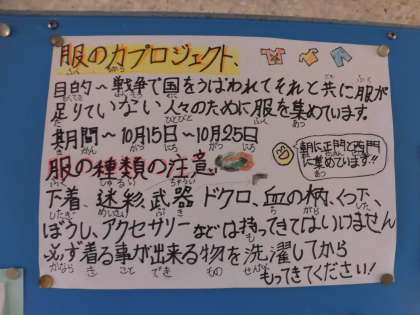 服の力プロジェクト、
目的～戦争で国をうばわれてそれと共に服が
足りていない人々のために服を集めています。
期間～10月15日～10月25日
朝に正門と西門
に集めています!!
服の種類の注意
下着、迷彩、武器 ドクロ、血の柄、くつ下、
ぼうし、アクセサリーなどは持ってきてはいけません
必ず着る事が出来る物を洗濯してから
もってきてください!